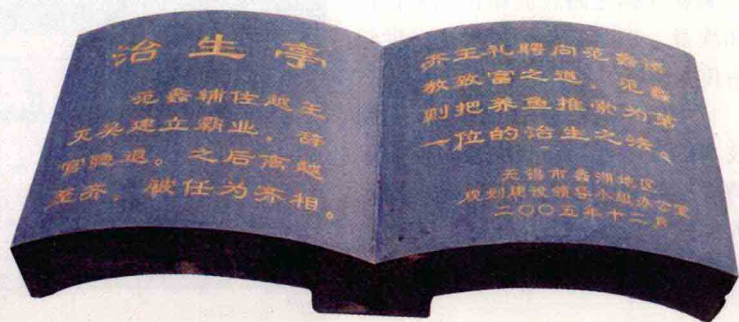 治生亭
范蠡辅佐越王
灭吴建立霸业，辞
官隐退。之后离越
至齐，被任为齐相。
齐王礼聘向范蠡请
教致富之道，范蠡
则把养鱼推崇为第
一位的治生之法。
无锡市蠡湖地区
规划建设领导小组办公室
二〇〇五年十二月